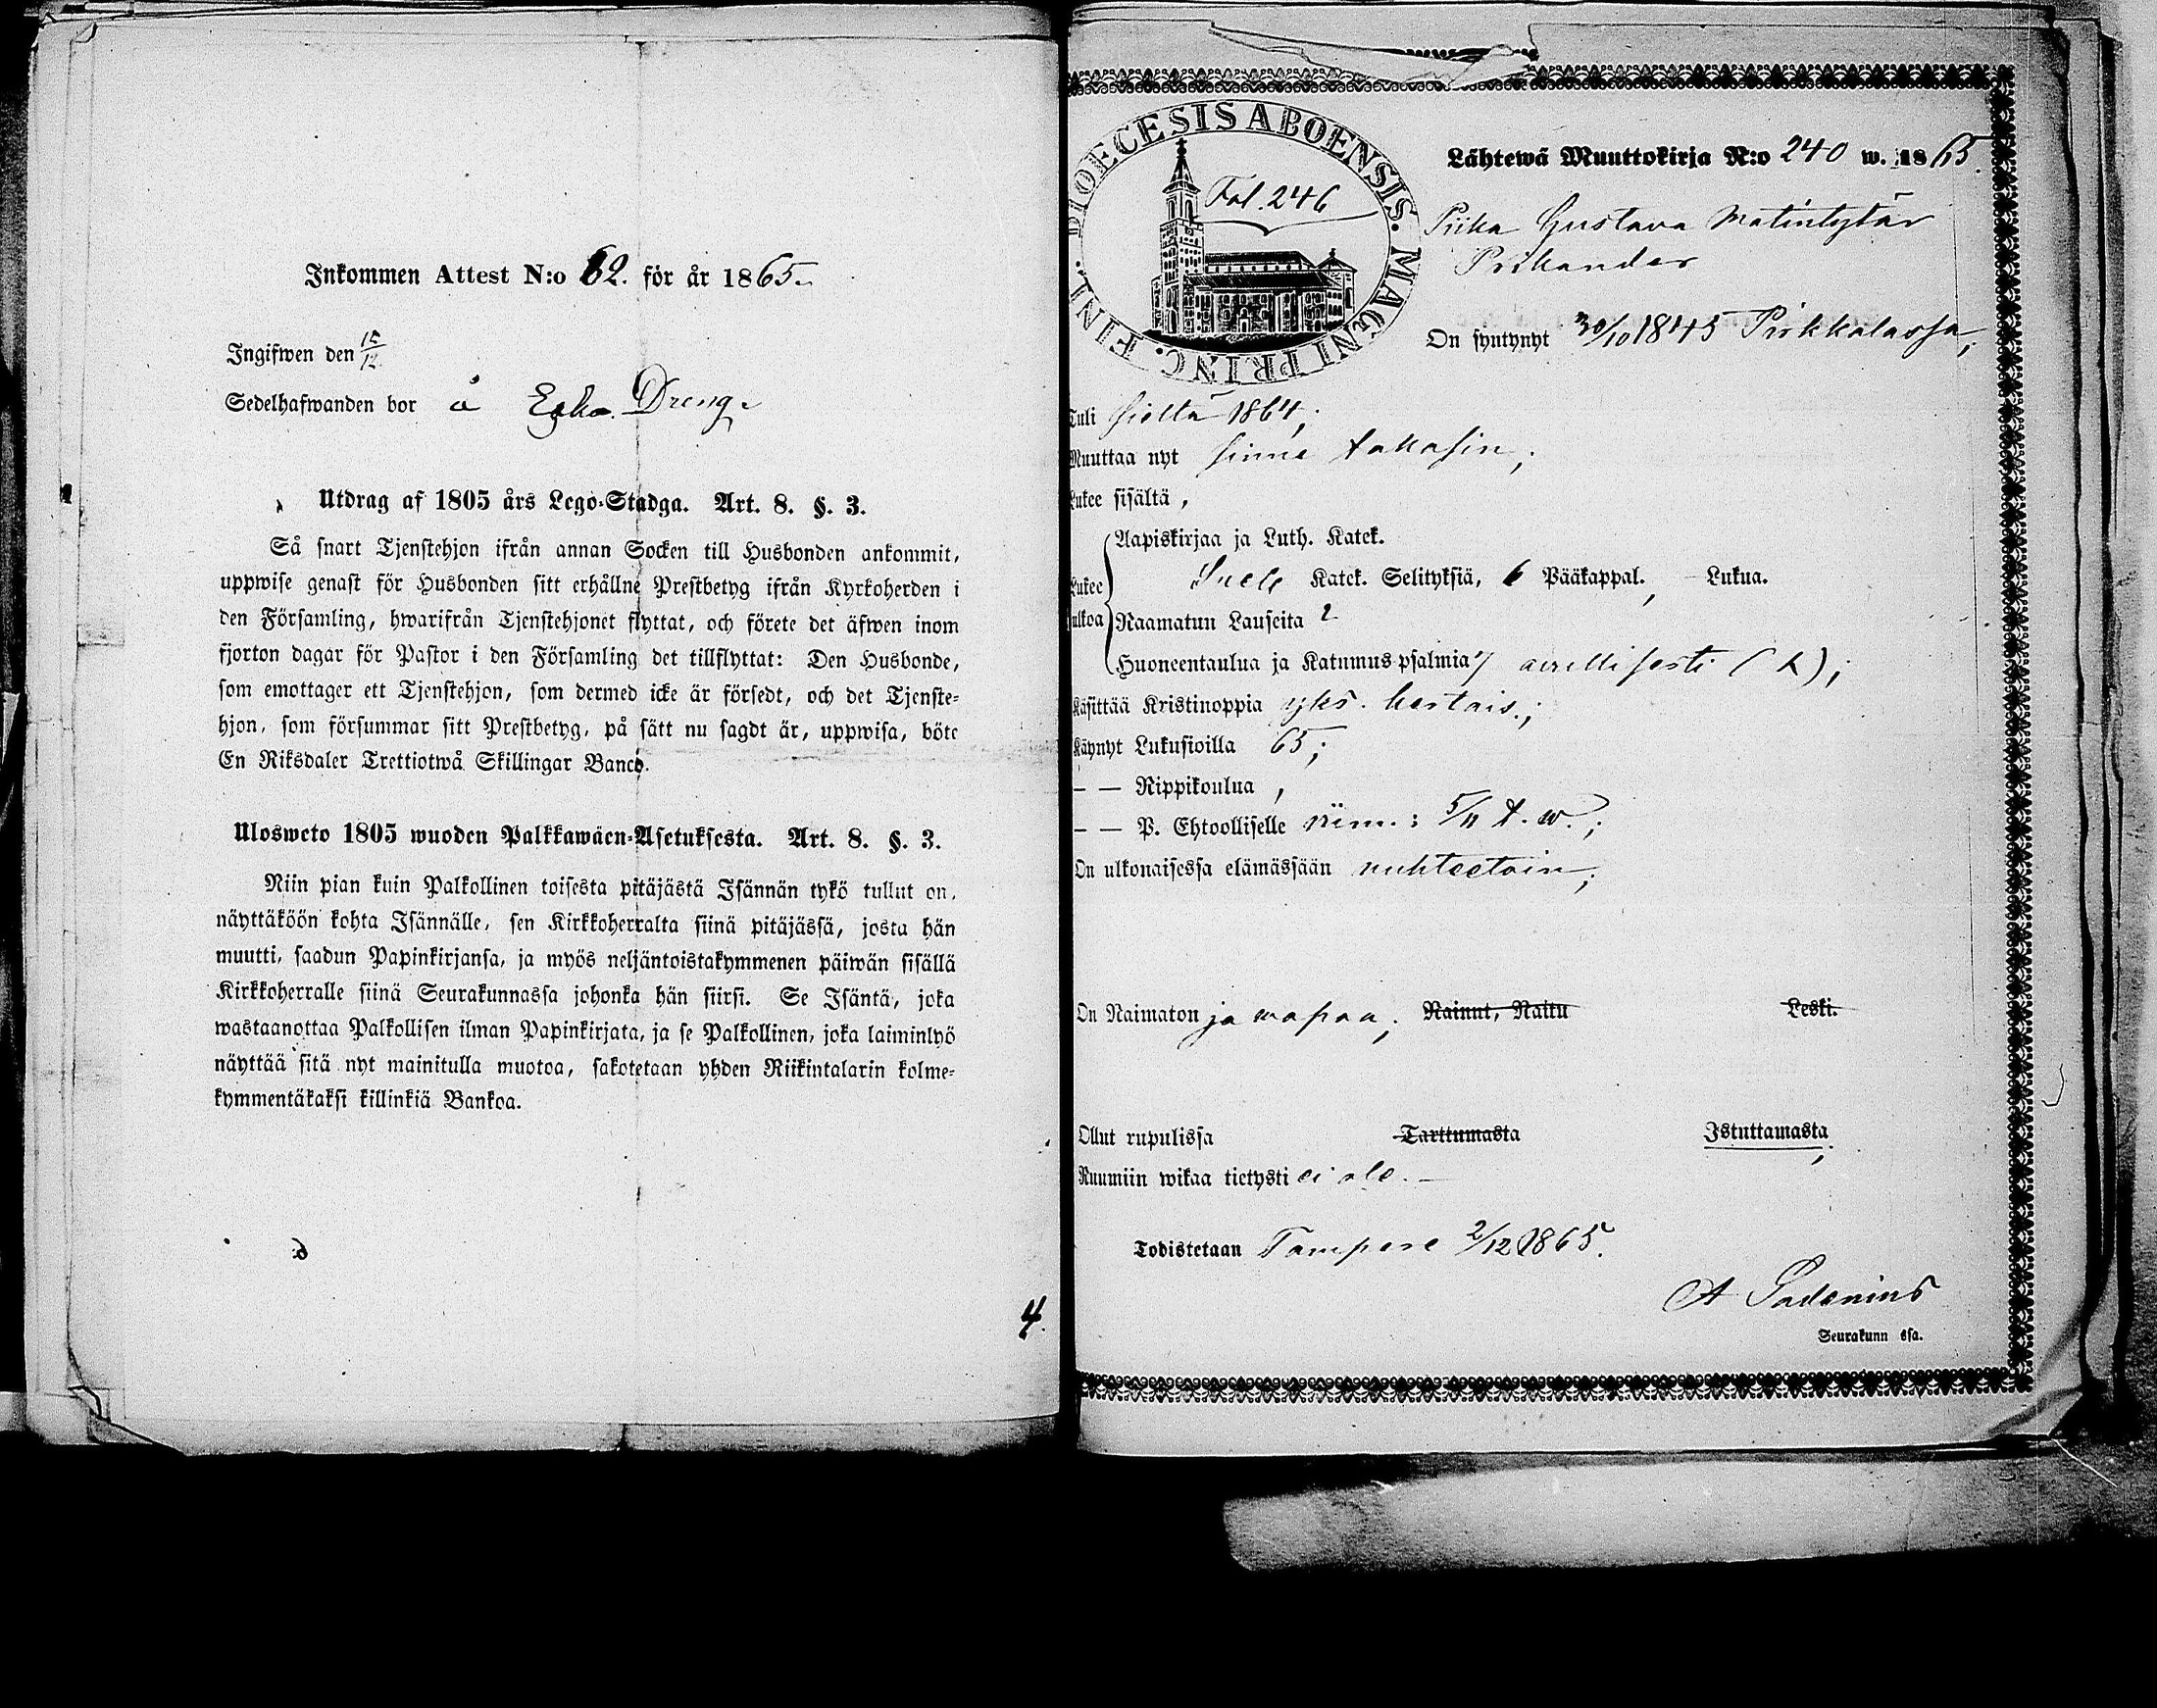 Inkommen Attest N:o 62. för år 1865.
Ingifwen den 15/12.
Sedelhafwanden bor å Dreng.
Utdrag af 1805 års Lego-Stadga. Art. 8. §. 3.
Så snart Tjenstehjon ifrån annan Socken till Husbonden ankommit,
uppwise genast för Husbonden sitt erhållne Prestbetyg ifrån Kyrkoherden i
den Församling, hwarifrån Tjenstehjonet flyttat, och förete det äfwen inom
fjorton dagar för Pastor i den Församling det tillflyttat: Den Husbonde,
som emottager ett Tjenstehjon, som dermed icke är försedt, och det Tjenste-
hjon, som försummar sitt Prestbetyg, på sätt nu sagdt är, uppwisa, böte
En Riksdaler Trettiotwå Skillingar Banco.
Ulosweto 1805 wuoden Palkkawäen-Asetuksesta. Art. 8. §. 3.
Niin pian kuin Palkollinen toisesta pitäjästä Isännän tykö tullut on,
näyttäköön kohta Isännälle, sen Kirkkoherralta siinä pitäjässä, josta hän
muutti, saadun Papinkirjansa, ja myös neljäntoistakymmenen päiwän sisällä
Kirkkoherralle siinä Seurakunnassa johonka hän siirsi. Se Isäntä, joka
wastaanottaa Palkollisen ilman Papinkirjata, ja se Palkollinen, joka laiminlyö
näyttää sitä nyt mainitulla muotoa, sakotetaan yhden Riikintalarin kolme-
kymmentäkaksi killinkiä Bankoa.
4.
DIOECESIS ABOENSIS. MAGNI PRINC. FINL.
Fol. 246
Lähtewä Muuttokirja N:o 240 w. 1865.
Piika Gustava Matintytär
On syntynyt 30/10 1845 Pirkkalassa,
Tuli sieltä 1864;
Muuttaa nyt sinne takasin;
Lukee sisältä,
Aapiskirjaa ja Luth. Katek.
Lukee Katek. Selityksiä, 6 Pääkappal., Lukua.
ulkoa Raamatun Lauseita 2
Huoneentaulua ja Katumus-psalmia 7 awullisesti
Käsittää Kristinoppia yks. kertais.;
Käynyt Lukusioilla 65;
— — Rippikoulua,
— — P. Ehtoolliselle wiim.: 5/11 t. w.;
On ulkonaisessa elämässään nuhteetoin;
On Naimaton ja wapaa; Nainut, Naitu Leski.
Ollut rupulissa Tarttumasta Istuttamasta,
Ruumiin wikaa tietysti ei ole. —
Todistetaan Tampere 2/12 1865.
A
Seurakunn ssa.